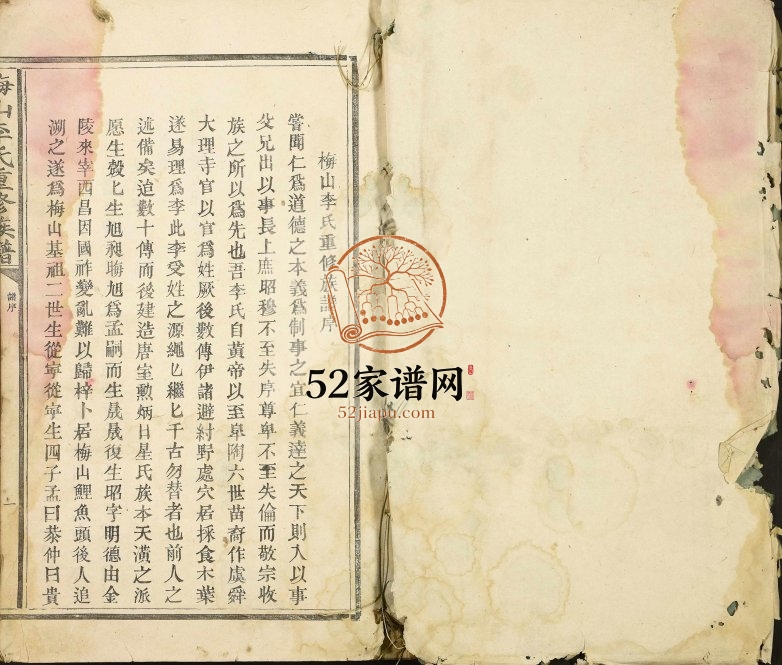 梅山李氏重修族譜序
嘗聞仁爲道德之本義爲制事之宜仁義達之天下則入以事
父兄出以事長上庶昭穆不至失序尊卑不至失倫而敬宗收
族之所以爲先也吾李氏自黃帝以至臯陶六世苗裔作虞舜
大理寺官以官爲姓厥後數傳伊諸避紂野處穴居採食木葉
遂易理爲李此李受姓之源繩匕繼匕千古勿替者也前人之
述備矣迨數十傳而後建造唐室勲炳日星氏族本天潢之派
愿生毅匕生旭昶晦旭爲孟嗣而生晟晟復生昭字明德由金
陵來宰西昌因國祚變亂難以歸梓卜居梅山鯉魚頭後人追
溯之遂爲梅山基祖二世生從寧從寧生四子孟曰恭仲曰貴
梅山李氏重修族譜
譜序
一
52家谱网
52jiapu.com